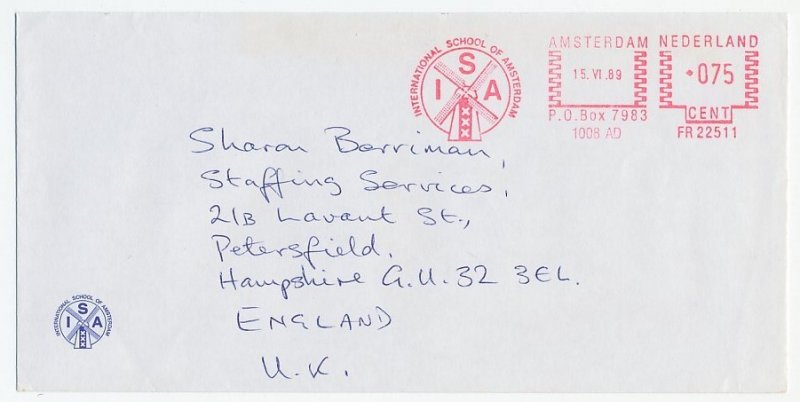 INTERNATIONAL SCHOOL OF AMSTERDAM
ISA
AMSTERDAM NEDERLAND
15.VI.89
075
P.O.Box 7983
CENT
1008 AD
FR 22511
Sharon Berriman,
Staffing Services,
21B Lavant St.,
Petersfield.
Hampshire G.U.32 3EL.
ENGLAND
U.K.
INTERNATIONAL SCHOOL OF AMSTERDAM
ISA